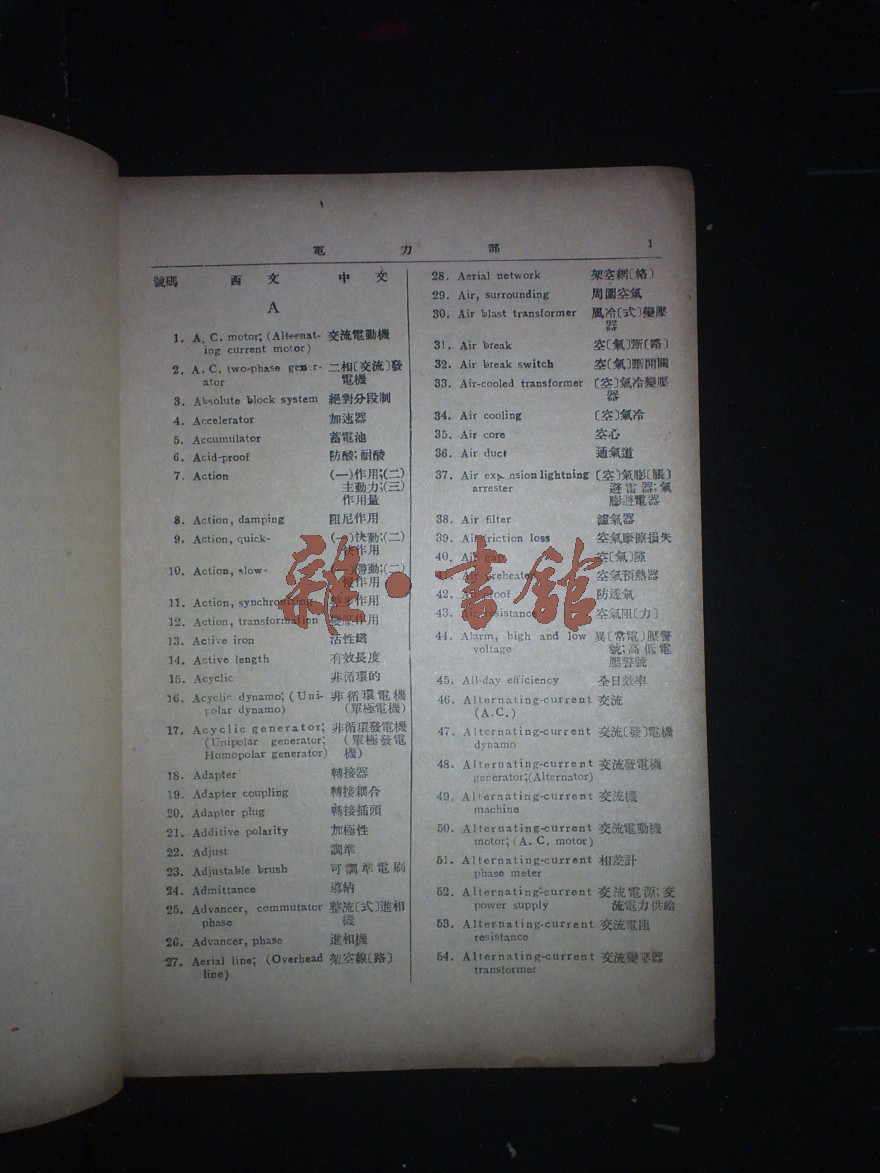 電力部 1
號碼 西文 中文
A
1. A. C. motor; (Alternat- 交流電動機
ing current motor)
2. A. C. two-phase gener- 二相〔交流〕發
ator 電機
3. Absolute block system 絕對分段制
4. Accelerator 加速器
5. Accumulator 蓄電池
6. Acid-proof 防酸;耐酸
7. Action (一)作用;(二)
主動力;(三)
作用量
8. Action, damping 阻尼作用
9. Action, quick- (一)快動;(二)
快作用
10. Action, slow- (一)滯動;(二)
慢作用
11. Action, synchronizing 整步作用
12. Action, transformation 變壓作用
13. Active iron 活性鐵
14. Active length 有效長度
15. Acyclic 非循環的
16. Acyclic dynamo; (Uni- 非循環電機
polar dynamo) (單極電機)
17. Acyclic generator; 非循環發電機
(Unipolar generator; (單極發電
Homopolar generator) 機)
18. Adapter 轉接器
19. Adapter coupling 轉接耦合
20. Adapter plug 轉接插頭
21. Additive polarity 加極性
22. Adjust 調準
23. Adjustable brush 可調準電刷
24. Admittance 導納
25. Advancer, commutator 整流〔式〕進相
phase 機
26. Advancer, phase 進相機
27. Aerial line; (Overhead 架空線〔路〕
line)
28. Aerial network 架空網〔絡〕
29. Air, surrounding 周圍空氣
30. Air blast transformer 風冷〔式〕變壓
器
31. Air break 空〔氣〕斷〔路〕
32. Air break switch 空〔氣〕斷開關
33. Air-cooled transformer 〔空〕氣冷變壓
器
34. Air cooling 〔空〕氣冷
35. Air core 空心
36. Air duct 通氣道
37. Air expansion lightning 〔空〕氣膨〔脹〕
arrester 避雷器;氣
膨避電器
38. Air filter 濾氣器
39. Air friction loss 空氣摩擦損失
40. Air gap 空〔氣〕隙
41. Air preheater 空氣預熱器
42. Airproof 防透氣
43. Air resistance 空氣阻〔力〕
44. Alarm, high and low 異〔常電〕壓警
voltage 號;高低電
壓警號
45. All-day efficiency 全日效率
46. Alternating-current 交流
(A.C.)
47. Alternating-current 交流〔發〕電機
dynamo
48. Alternating-current 交流發電機
generator;(Alternator)
49. Alternating-current 交流機
machine
50. Alternating-current 交流電動機
motor; (A. C. motor)
51. Alternating-current 相差計
phase meter
52. Alternating-current 交流電源;交
power supply 流電力供給
53. Alternating-current 交流電阻
resistance
54. Alternating-current 交流變壓器
transformer
雜·書館